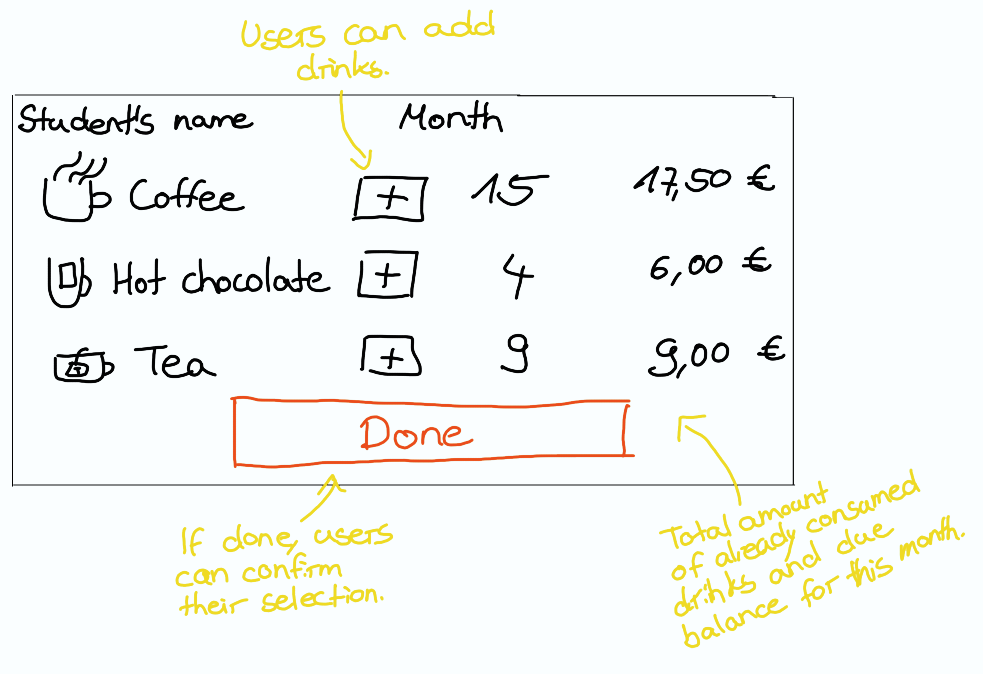 Users can add
drinks.
Student's name Month
Coffee + 15 17,50 €
Hot chocolate + 4 6,00 €
Tea + 9 9,00 €
Done
If done, users
can confirm
their selection.
Total amount
of already consumed
drinks and due
balance for this month.